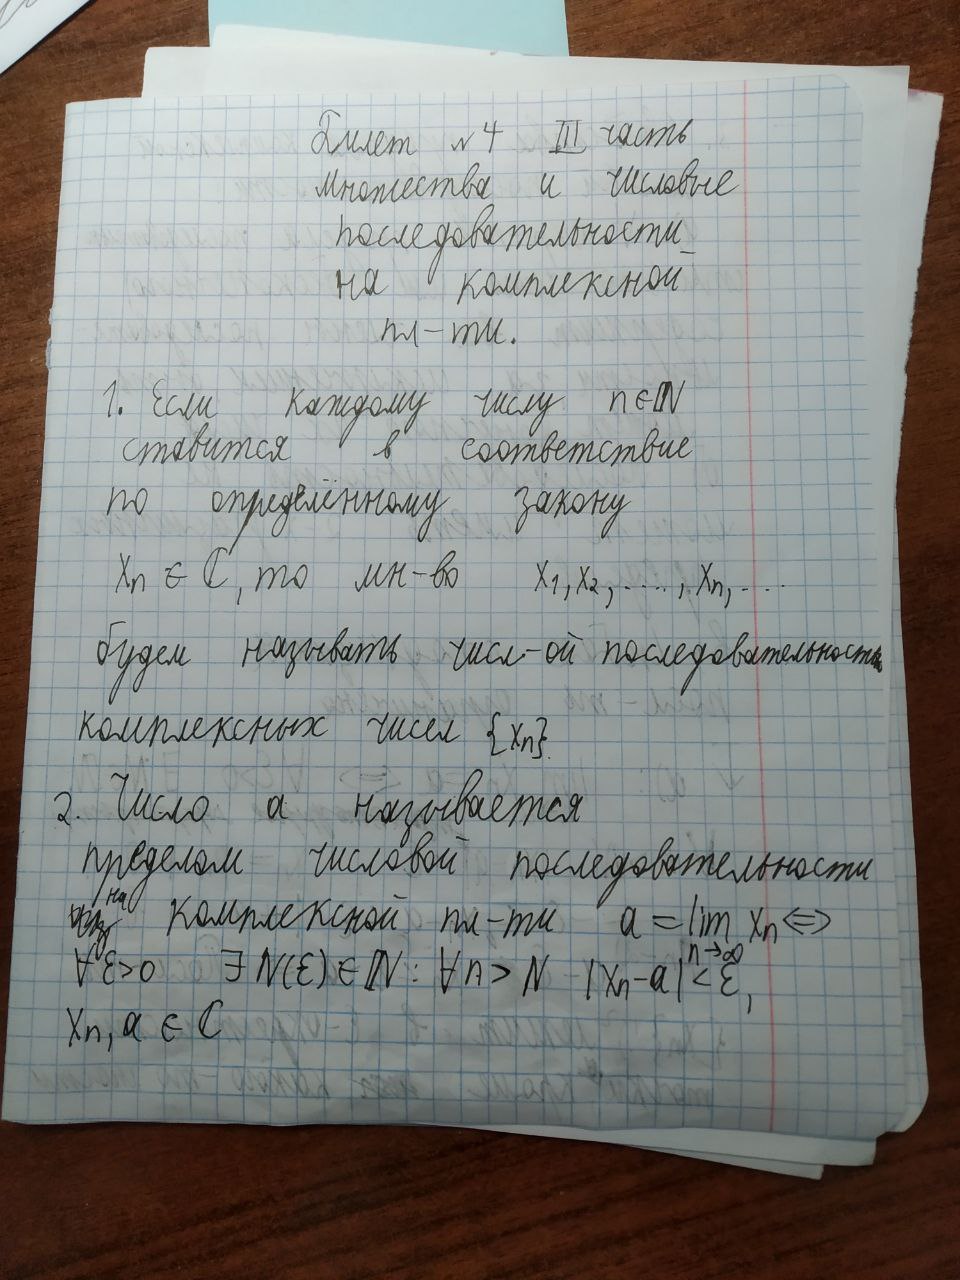 Билет №4 III часть
Множества и числовые
последовательности
на комплексной
пл-ти.
1. Если каждому числу n∈ℕ
ставится в соответствие
по определённому закону
xₙ ∈ ℂ, то мн-во x₁, x₂, ...., xₙ, ...
будем называть числ-ой последовательностью
комплексных чисел {xₙ}.
2. Число a называется
пределом числовой последовательности
на комплексной пл-ти a = lim xₙ ⇔
n→∞
∀ε>0 ∃N(ε)∈ℕ: ∀n>N |xₙ-a|<ε,
xₙ, a ∈ ℂ